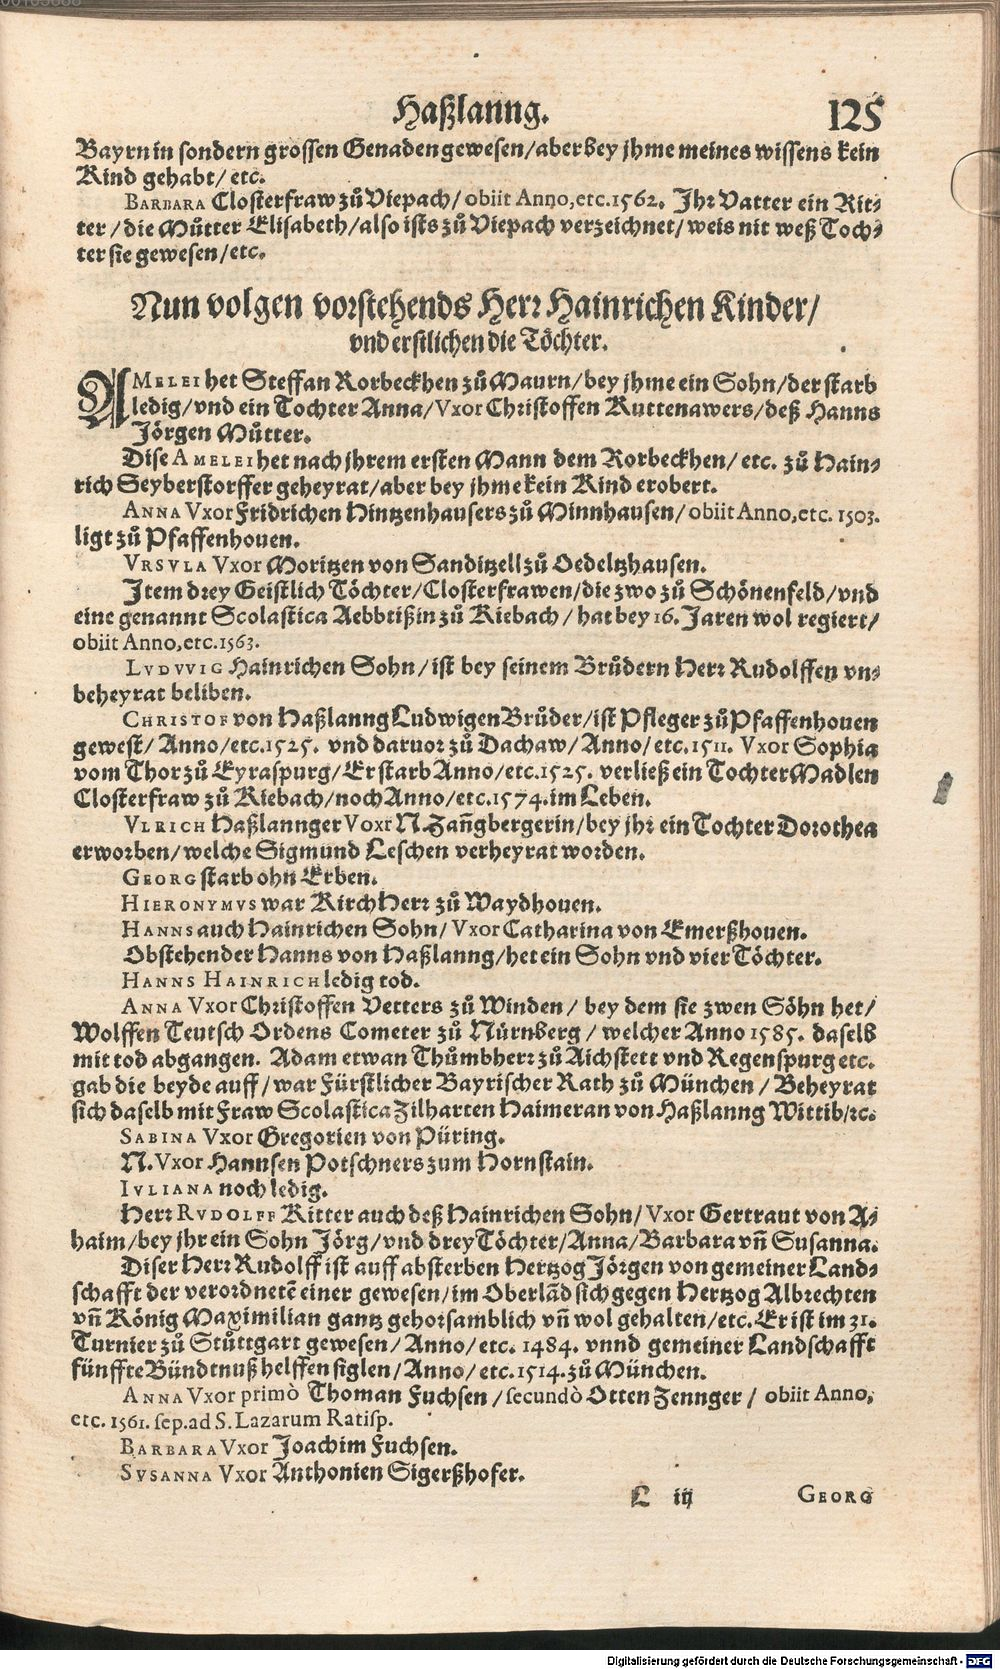 Haßlanng. 125
Bayrn in sondern grossen Genaden gewesen/aber bey jhme meines wissens kein
Kind gehabt/ etc.
BARBARA Closterfraw zů Viepach/ obiit Anno, etc. 1562. Jhr Vatter ein Rit-
ter/die Můtter Elisabeth/also ists zů Viepach verzeichnet/weis nit weß Toch-
ter sie gewesen/etc.
Nun volgen vorstehends Herr Hainrichen Kinder/
vnd erstlichen die Töchter.
AMELEI het Steffan Rorbeckhen zů Maurn/bey jhme ein Sohn/der starb
ledig/vnd ein Tochter Anna/Vxor Christoffen Ruttenawers/deß Hanns
Jörgen Můtter.
Dise AMELEI het nach jhrem ersten Mann dem Rorbeckhen/ etc. zů Hain-
rich Seyberstorffer geheyrat/aber bey jhme kein Kind erobert.
ANNA Vxor Fridrichen Hintzenhausers zů Minnhausen/ obiit Anno, etc. 1503.
ligt zů Pfaffenhouen.
VRSVLA Vxor Moritzen von Sanditzell zů Oedeltzhausen.
Jtem drey Geistlich Töchter/Closterfrawen/die zwo zů Schönenfeld/vnd
eine genannt Scolastica Aebbtißin zů Kiebach/ hat bey 16. Jaren wol regiert/
obiit Anno, etc. 1563.
LVDVVIG Hainrichen Sohn/ist bey seinem Brůdern Herr Rudolffen vn-
beheyrat beliben.
CHRISTOF von Haßlanng Ludwigen Brůder/ist Pfleger zů Pfaffenhouen
gewest/ Anno/etc. 1525. vnd daruor zů Dachaw/ Anno/ etc. 1511. Vxor Sophia
vom Thor zů Eyraspurg/ Er starb Anno/etc. 1525. verließ ein Tochter Madlen
Closterfraw zů Kiebach/noch Anno/etc. 1574. im Leben.
VLRICH Haßlannger Voxr N. Zan̄gbergerin/bey jhr ein Tochter Dorothea
erworben/welche Sigmund Leschen verheyrat worden.
GEORG starb ohn Erben.
HIERONYMVS war KirchHerr zů Waydhouen.
HANNS auch Hainrichen Sohn/ Vxor Catharina von Emerßhouen.
Obstehender Hanns von Haßlanng/het ein Sohn vnd vier Töchter.
HANNS HAINRICH ledig tod.
ANNA Vxor Christoffen Vetters zů Winden/ bey dem sie zwen Söhn het/
Wolffen Teutsch Ordens Cometer zů Nürnberg/ welcher Anno 1585. daselb
mit tod abgangen. Adam etwan Thůmbherr zů Aichstett vnd Regenspurg etc.
gab die beyde auff/war Fürstlicher Bayrischer Rath zů München/ Beheyrat
sich daselb mit Fraw Scolastica Zilharten Haimeran von Haßlanng Wittib/ꝛc.
SABINA Vxor Gregorien von Püring.
N. Vxor Hannsen Potschners zum Hornstain.
IVLIANA noch ledig.
Herr RVDOLFF Ritter auch deß Hainrichen Sohn/ Vxor Gertraut von A-
haim/bey jhr ein Sohn Jörg/vnd drey Töchter/Anna/Barbara vn̄ Susanna.
Diser Herr Rudolff ist auff absterben Hertzog Jörgen von gemeiner Land-
schafft der verordnetē einer gewesen/im Oberlād sich gegen Hertzog Albrechten
vn̄ König Maximilian gantz gehorsamblich vn̄ wol gehalten/etc. Er ist im 31.
Turnier zů Stůttgart gewesen/ Anno/etc. 1484. vnnd gemeiner Landschafft
fünffte Bündtnuß helffen siglen/ Anno/ etc. 1514. zů München.
ANNA Vxor primò Thoman Fuchsen/secundò Otten Zennger/ obiit Anno,
etc. 1561. sep. ad S. Lazarum Ratisp.
BARBARA Vxor Joachim Fuchsen.
SVSANNA Vxor Anthonien Sigerßhofer.
L iij GEORG
Digitalisierung gefördert durch die Deutsche Forschungsgemeinschaft - DFG